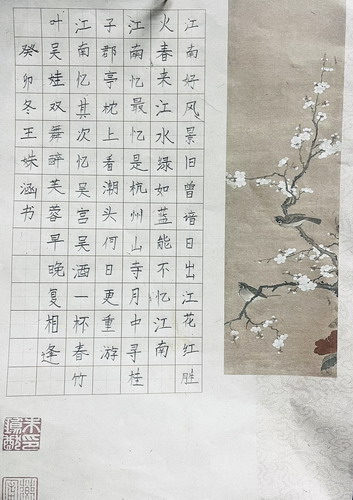 江南好风景旧曾谙日出江花红胜
火春来江水绿如蓝能不忆江南
江南忆最忆是杭州山寺月中寻桂
子郡亭枕上看潮头何日更重游
江南忆其次忆吴宫吴酒一杯春竹
叶吴娃双舞醉芙蓉早晚复相逢
癸卯冬王姝涵书